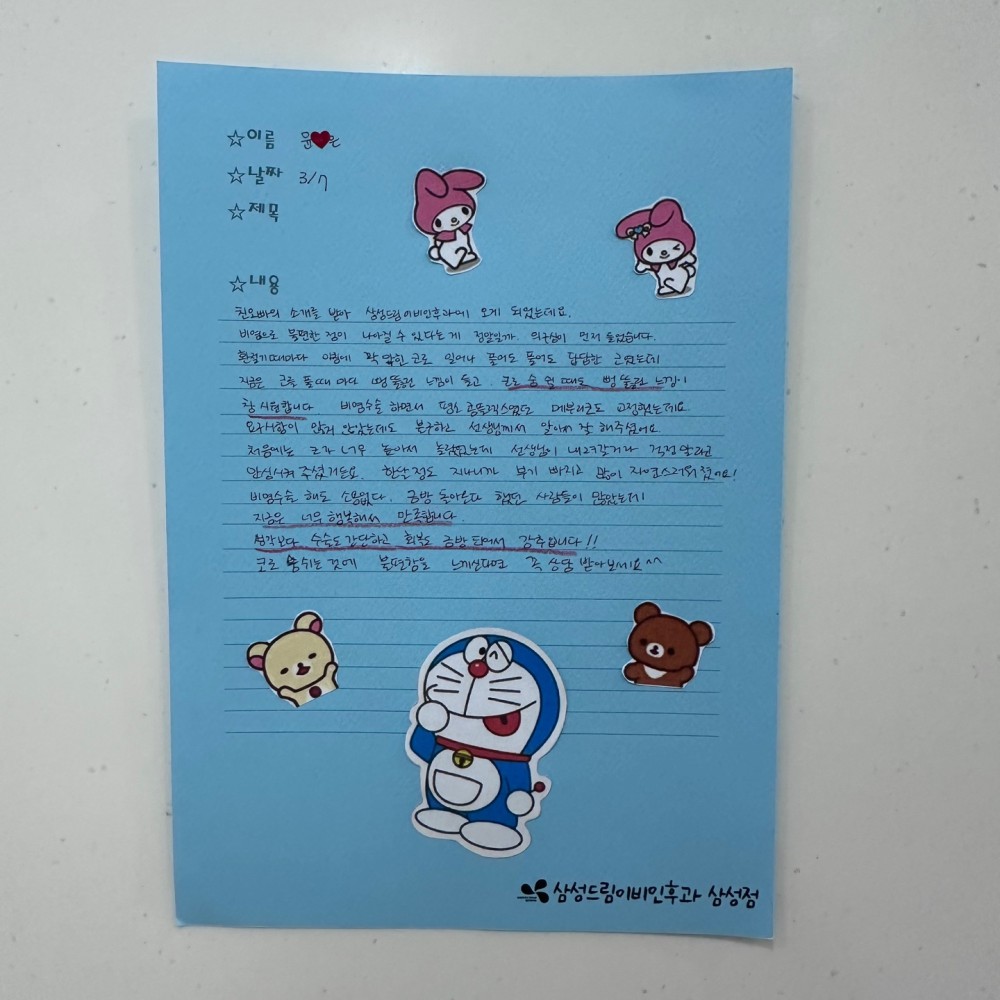 ☆이름 윤♥은
☆날짜 3/7
☆제목
☆내용
친오빠의 소개를 받아 삼성드림이비인후과에 오게 되었는데요.
비염으로 불편한 점이 나아질 수 있다는게 정말일까 의구심이 먼저 들었습니다.
환절기때마다 아침에 꽉 막힌 코로 일어나 풀어도 풀어도 답답한 코였는데
지금은 코를 풀때 마다 뻥 뚫린 느낌이 들고. 코로 숨 쉴 때도 뻥 뚫린 느낌이
참 시원합니다 비염수술 하면서 평소 콤플렉스였던 메부리코도 교정했는데요
요구사항이 많지 않았는데도 불구하고 선생님께서 알아서 잘 해주셨어요
처음에는 코가 너무 높아서 놀랐었는데 선생님이 내려갈거라 걱정 말라고
안심시켜 주셨거든요. 한달정도 지나니까 붓기 빠지고 많이 자연스러워졌어요!
비염수술 해도 소용없다. 금방 돌아온다 했던 사람들이 많았는데
지금은 너무 행복해서 만족합니다.
생각보다 수술도 간단하고 회복도 금방 되어서 강추입니다!!
코로 숨쉬는 것에 불편함을 느끼신다면 꼭 상담 받아보세요^^
삼성드림이비인후과 삼성점